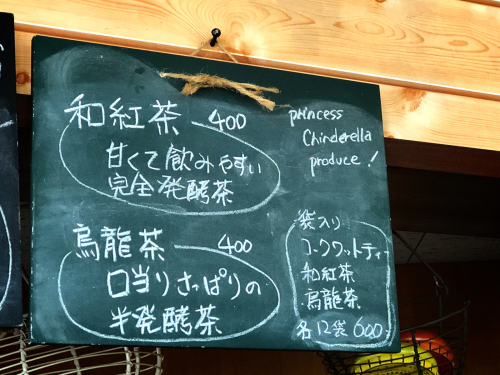 和紅茶 400
甘くて飲みやすい
完全発酵茶
烏龍茶 400
口当りさっぱりの
半発酵茶
princess
Chinderella
produce!
袋入り
コークワットティ
和紅茶
烏龍茶
各12袋 600